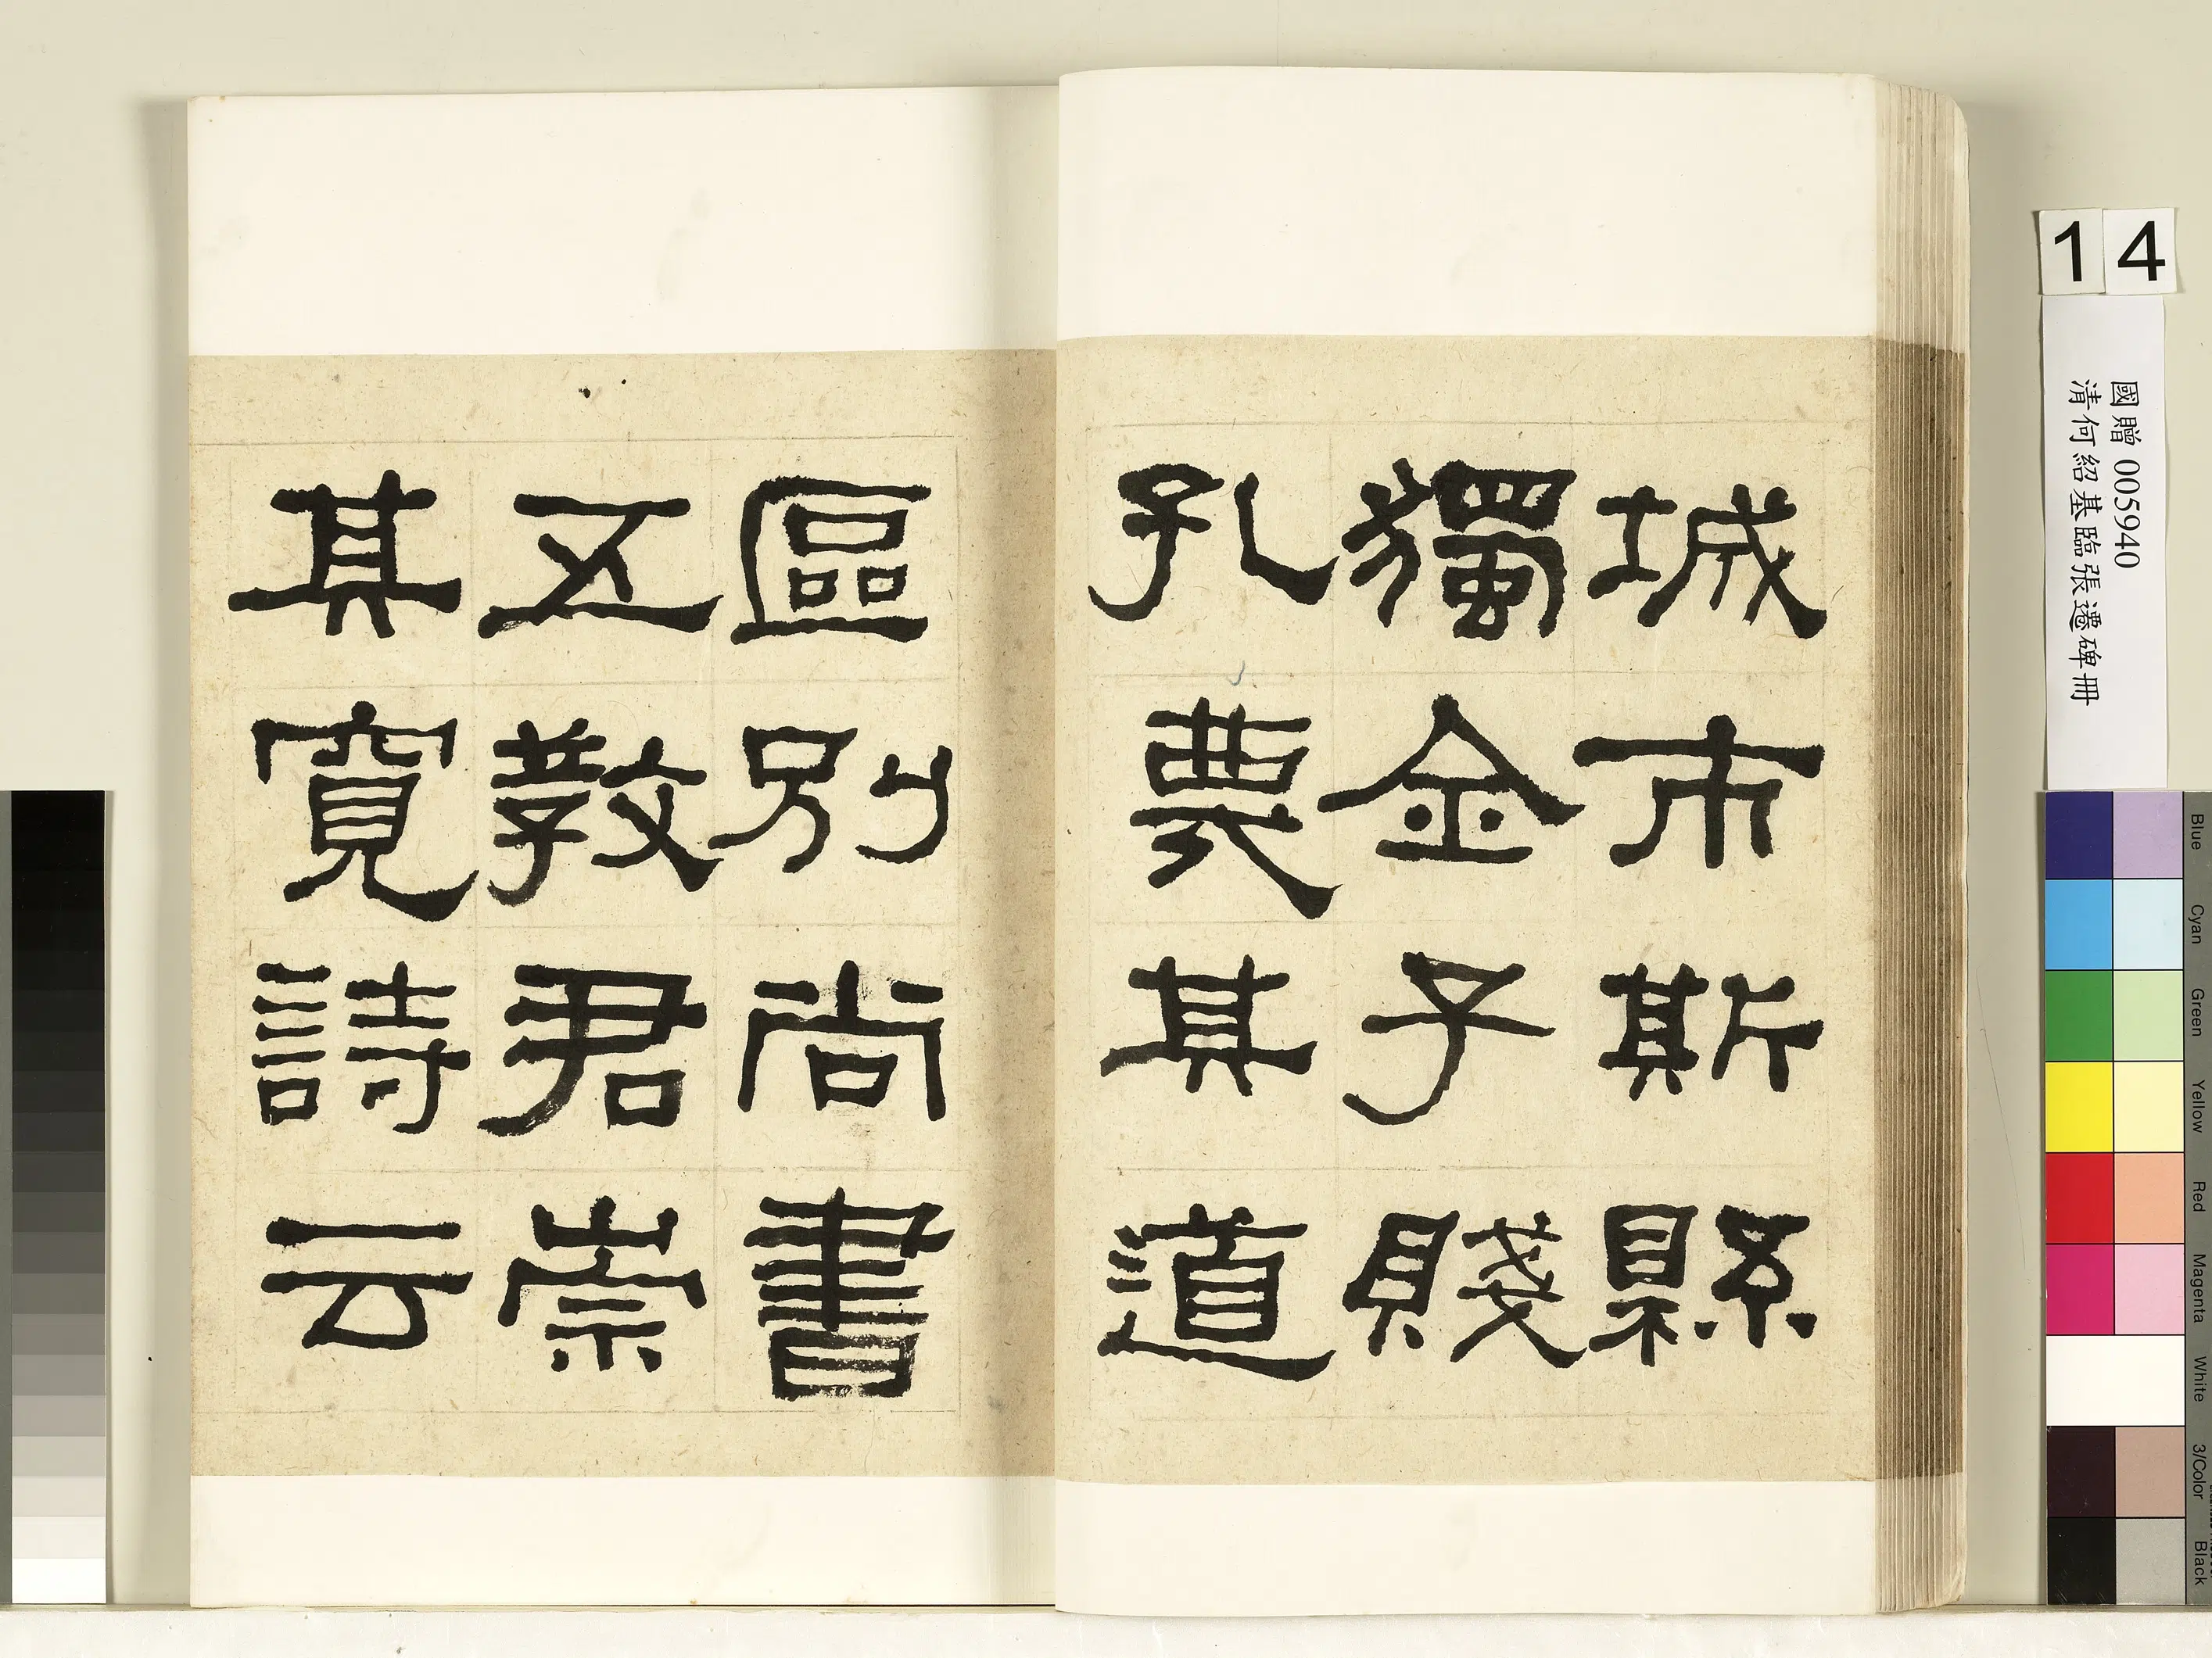 城市斯縣
獨全子賤
孔蔑其道
區別尚書
五教君崇
其寬詩云
14
國贈 005940
清何紹基臨張遷碑冊
Blue
Cyan
Green
Yellow
Red
Magenta
White
3/Color
Black